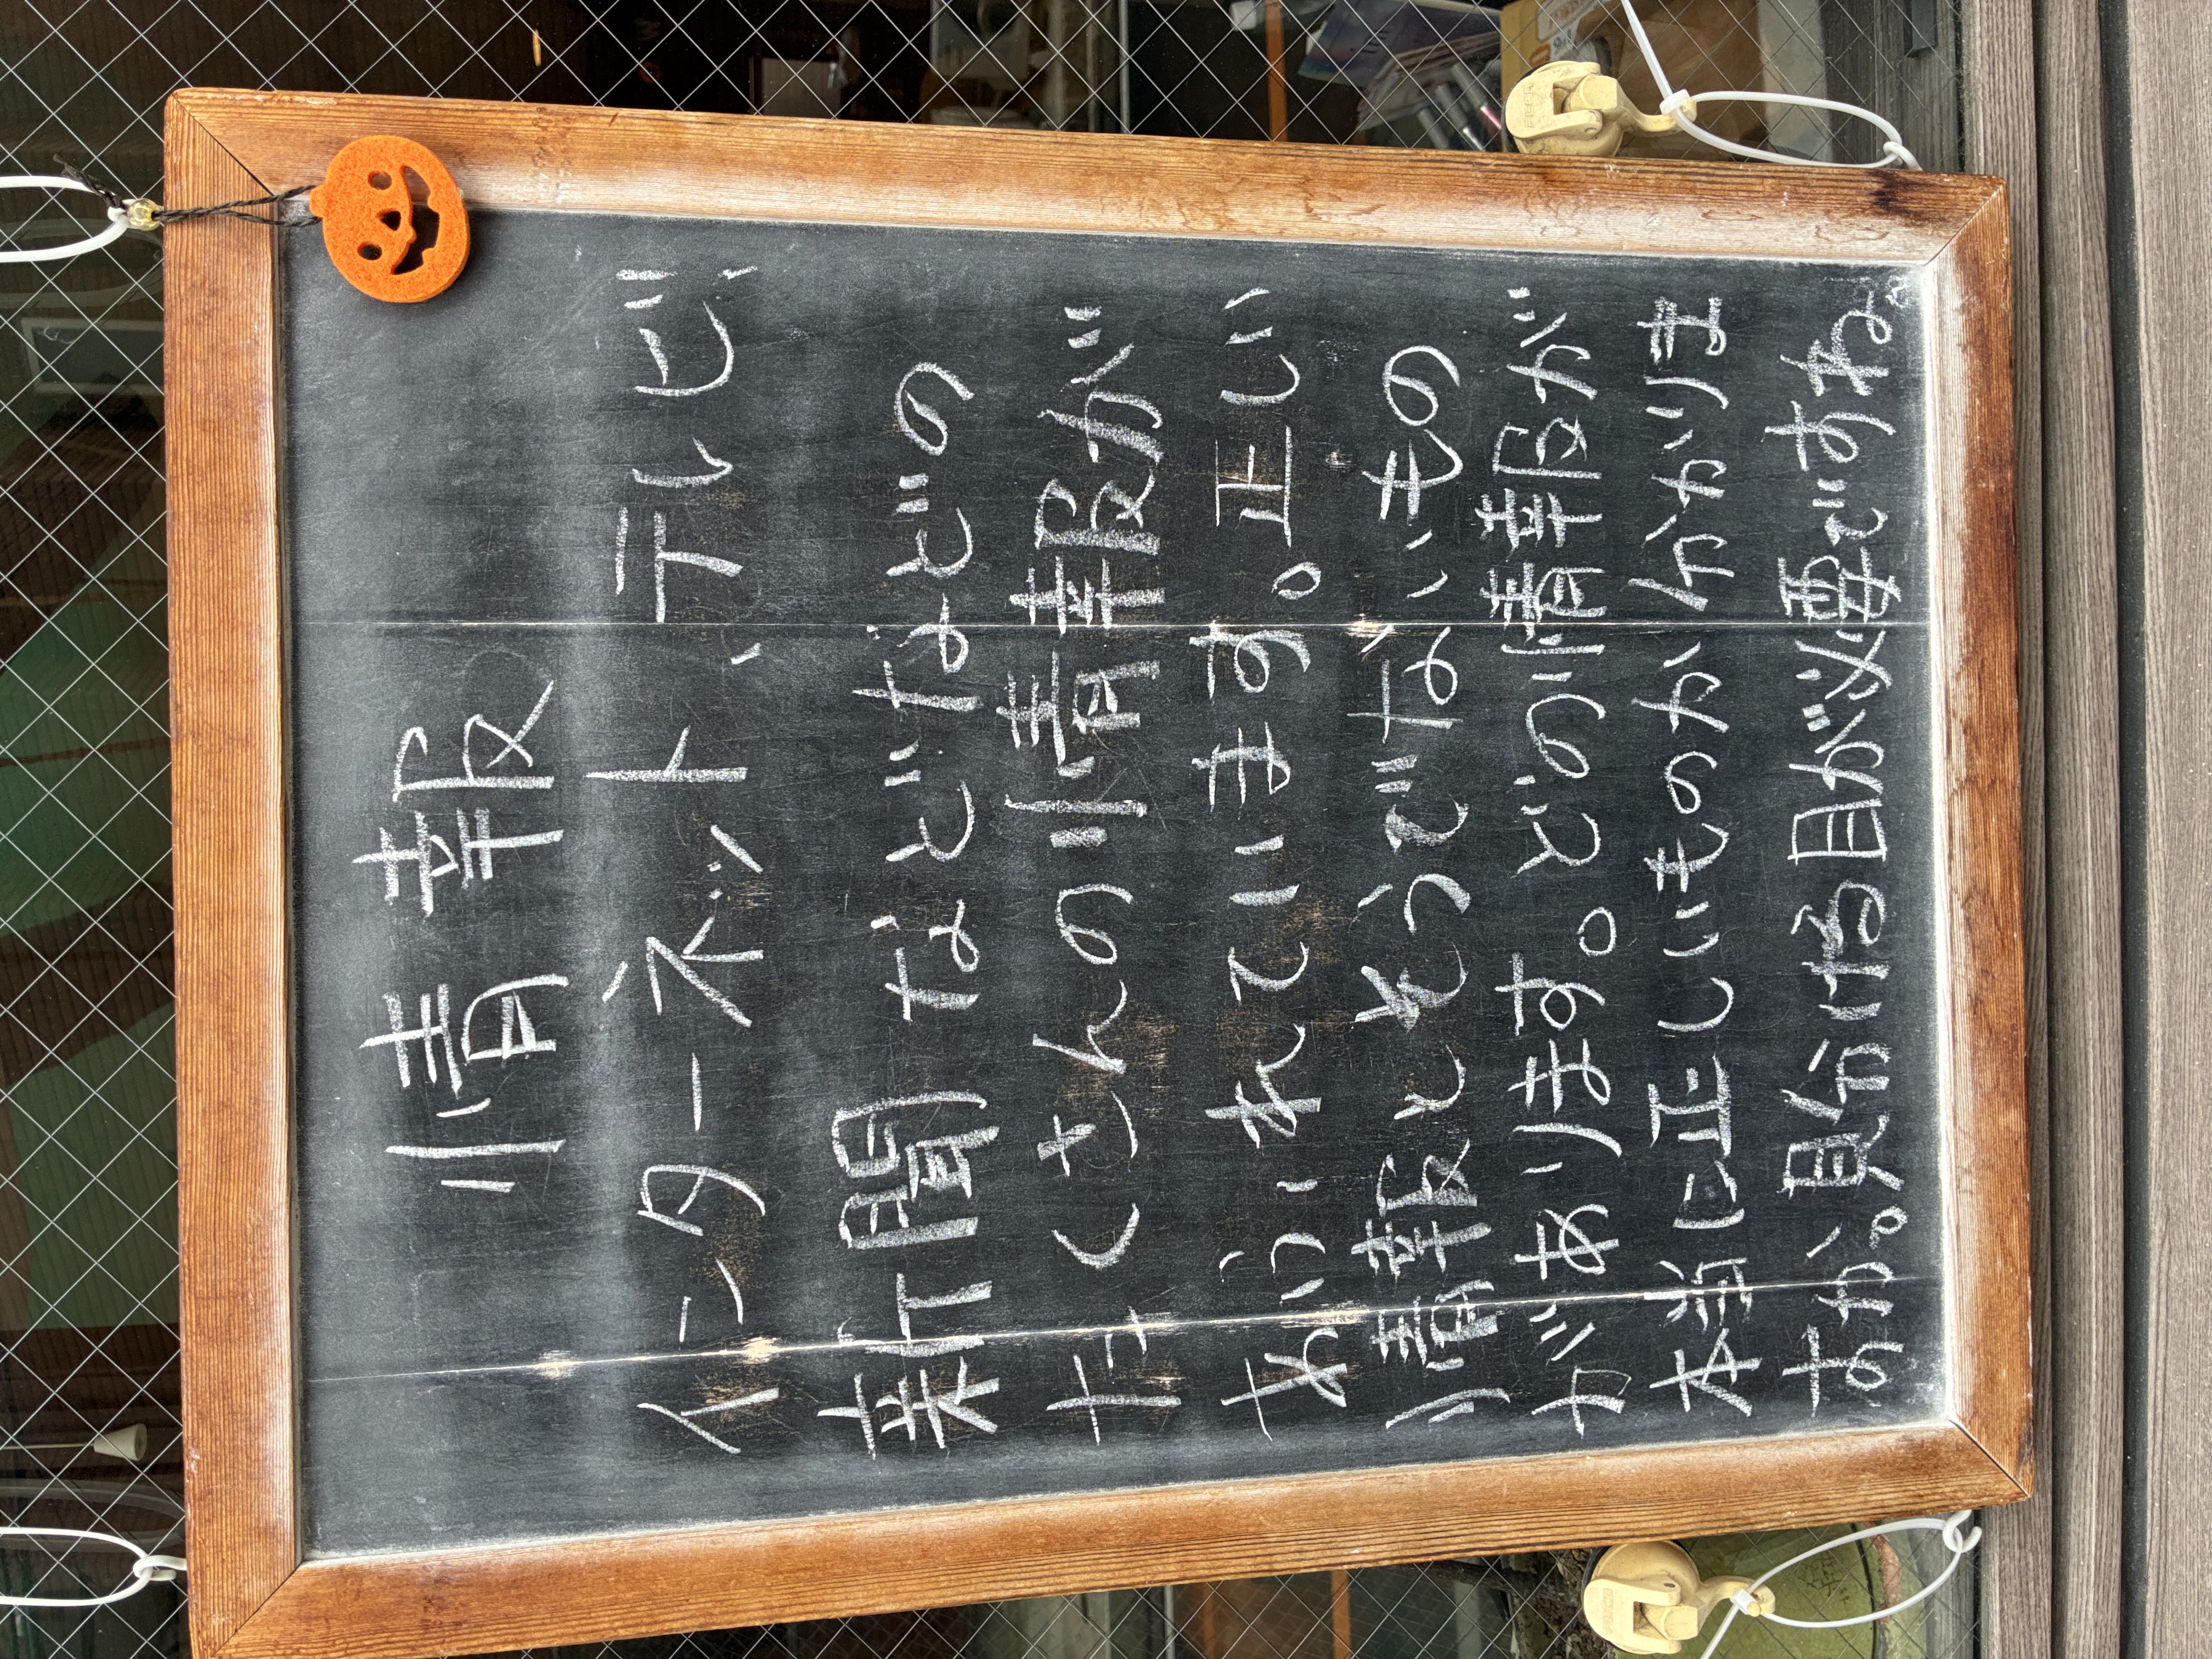 情報
インターネット、テレビ、
新聞などなどの
たくさんの情報が
あふれています。正しい
情報とそうでないもの
があります。どの情報が
本当に正しいものか分かりま
すか。見分ける目が必要ですね。